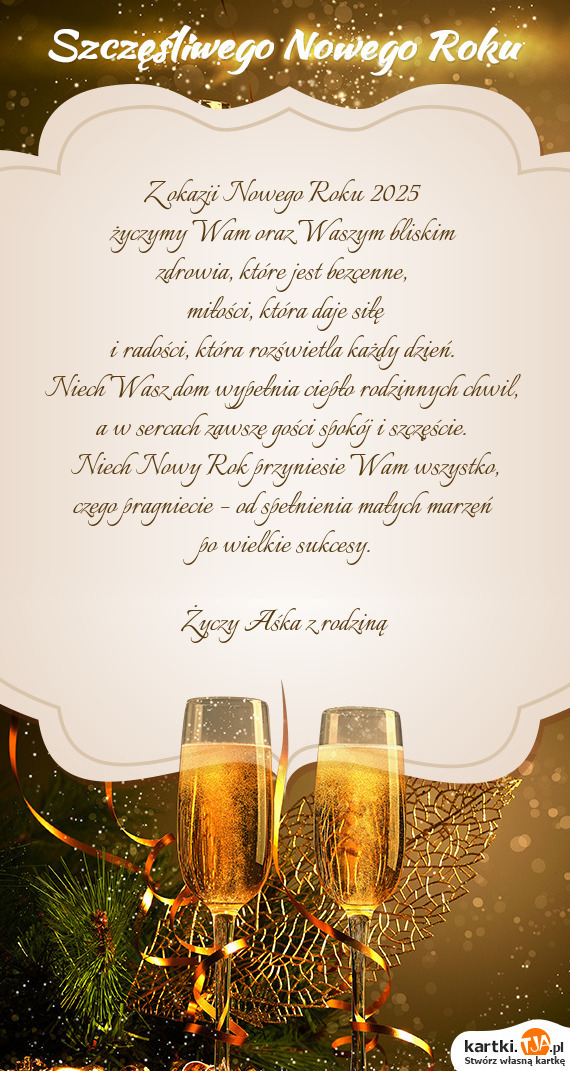 Szczęśliwego Nowego Roku
Z okazji Nowego Roku 2025
życzymy Wam oraz Waszym bliskim
zdrowia, które jest bezcenne,
miłości, która daje siłę
i radości, która rozświetla każdy dzień.
Niech Wasz dom wypełnia ciepło rodzinnych chwil,
a w sercach zawsze gości spokój i szczęście.
Niech Nowy Rok przyniesie Wam wszystko,
czego pragniecie – od spełnienia małych marzeń
po wielkie sukcesy.
Życzy Aśka z rodziną
kartki.TJA.pl
Stwórz własną kartkę